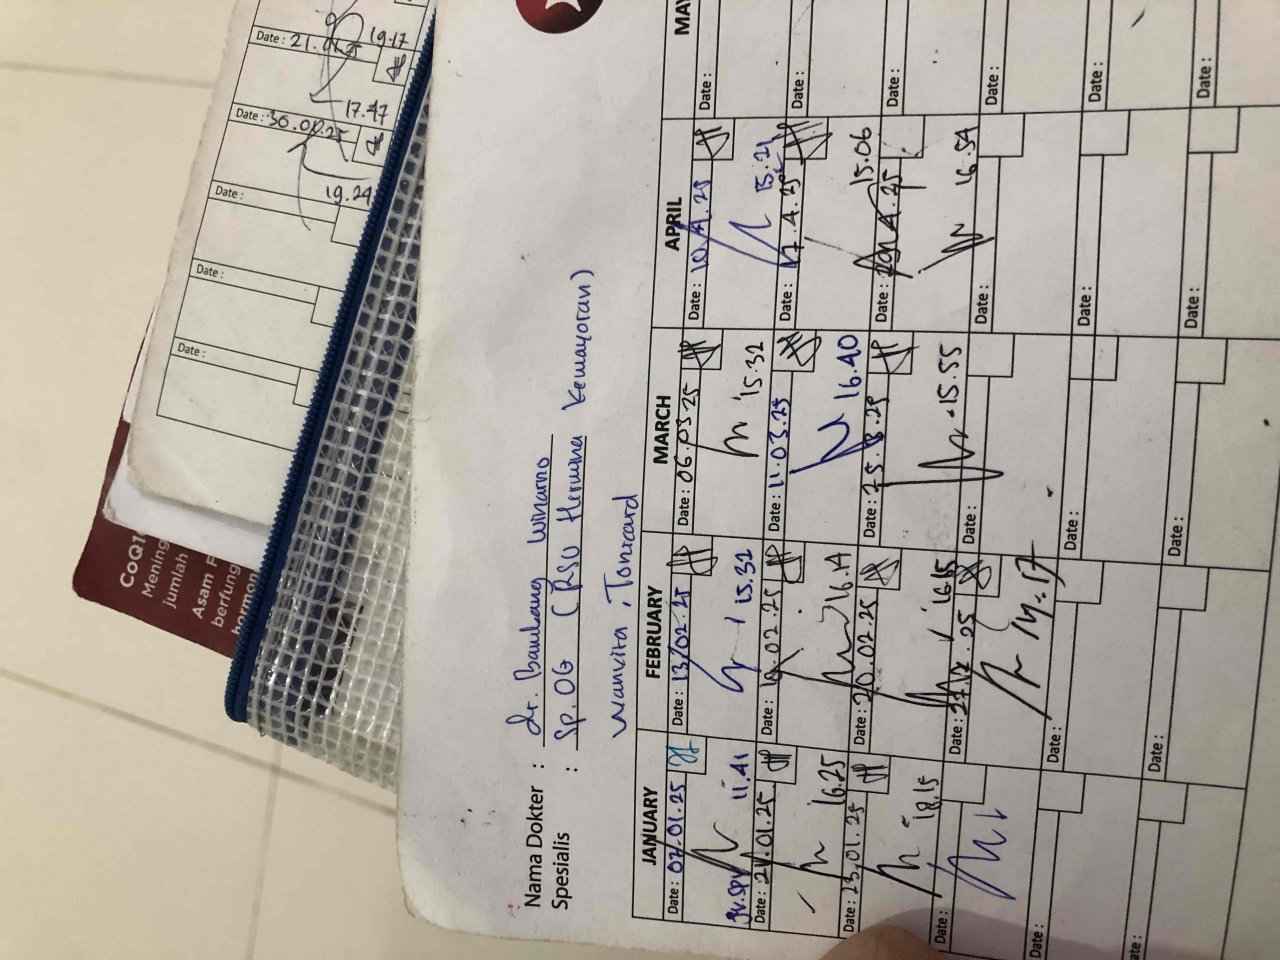 Nama Dokter : dr. Bambang Winarno
Spesialis : Sp.OG (RSU Hermina Kemayoran)
Wanvita, Tonicard
JANUARY FEBRUARY MARCH APRIL
Date: 07.01.25
11.41
Date: 21.01.25
16.25
Date: 23.01.25
18.15
Date:
Date:
Date: 13/02.25
15.32
Date: 02.25
16.14
Date: 20.02.25
16.15
Date: 25
Date:
Date:
Date: 06.03.25
15.32
Date: 11.03.25
16.40
Date: 25.3.25
15.55
Date:
Date:
Date:
Date: 10.4.25
15.21
Date: 17.4.25
15.06
Date: 4.25
16.54
Date:
Date:
Date:
Date:
Date:
Date:
Date:
Date:
Date:
19.17
Date: 21.01.25
17.47
Date: 30.01.25
19.24
Date:
Date:
Date:
CoQ1
Mening
jumlah
Asam F
berfung
hormon